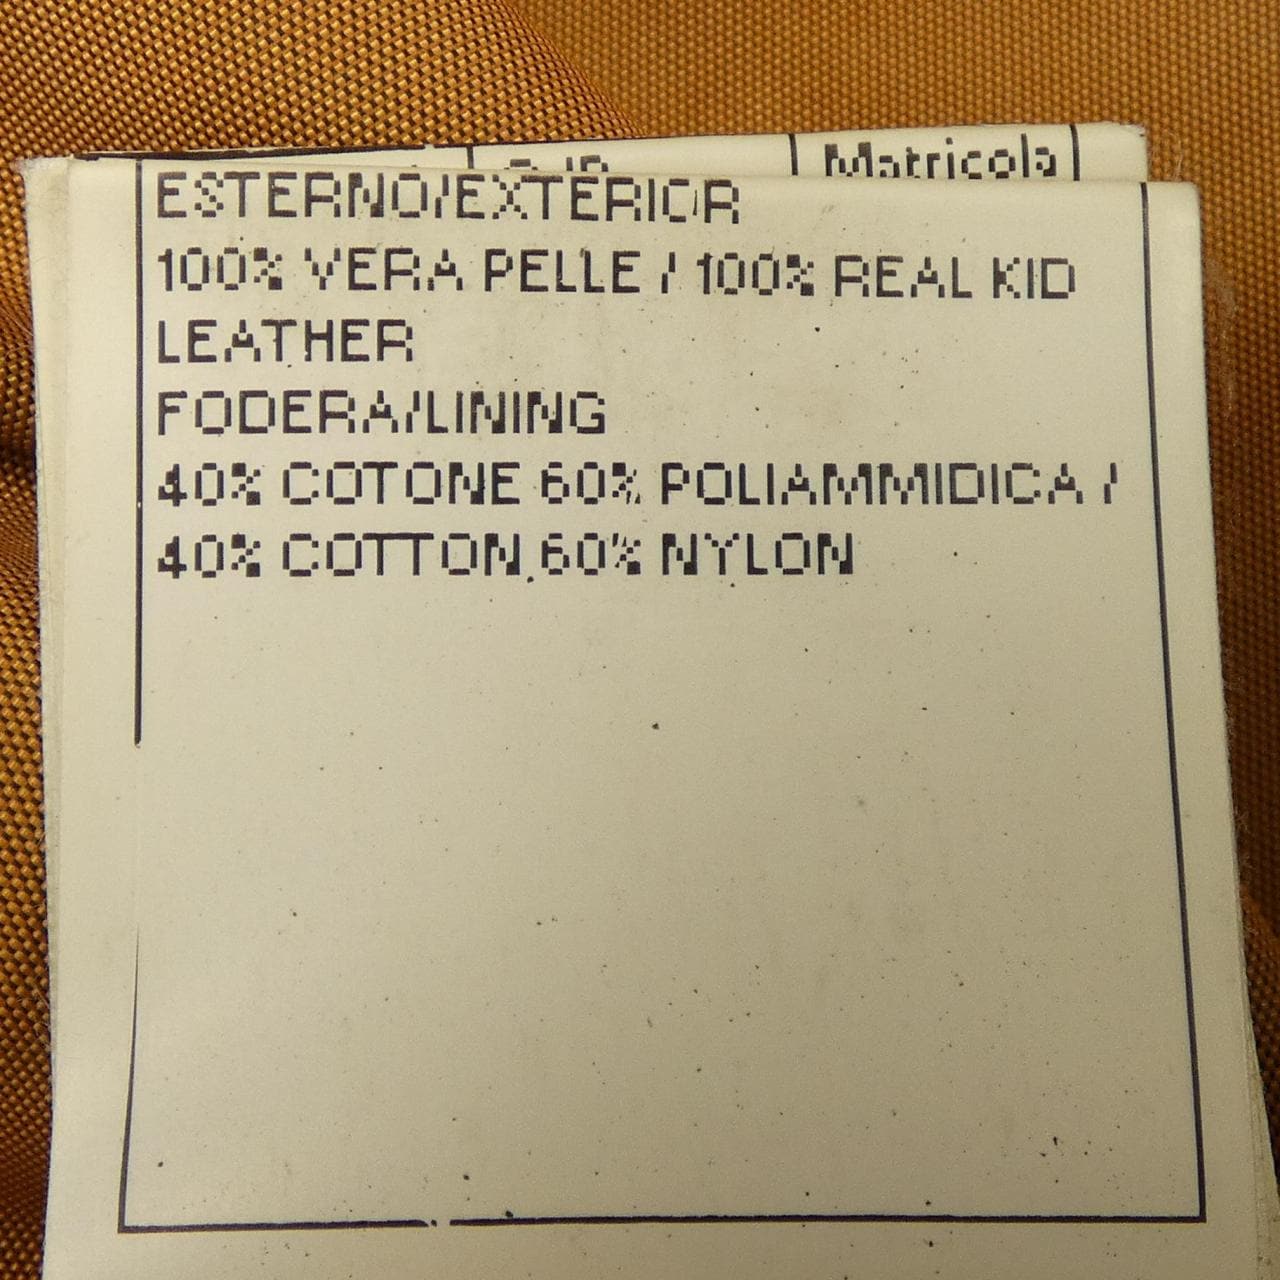 Matricola
ESTERNO/EXTERIOR
100% VERA PELLE / 100% REAL KID
LEATHER
FODERA/LINING
40% COTONE 60% POLIAMMIDICA /
40% COTTON 60% NYLON